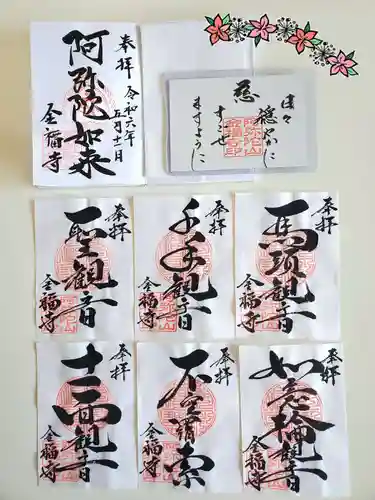 奉拝
令和六年
五月十一日
阿弥陀如来
全福寺
日々
穏やかに
慈
すごせ
ますように
奉拝
聖観音
全福寺
奉拝
千手観音
全福寺
奉拝
馬頭観音
全福寺
奉拝
十一面観音
全福寺
奉拝
不空羂索
全福寺
奉拝
如意輪観音
全福寺